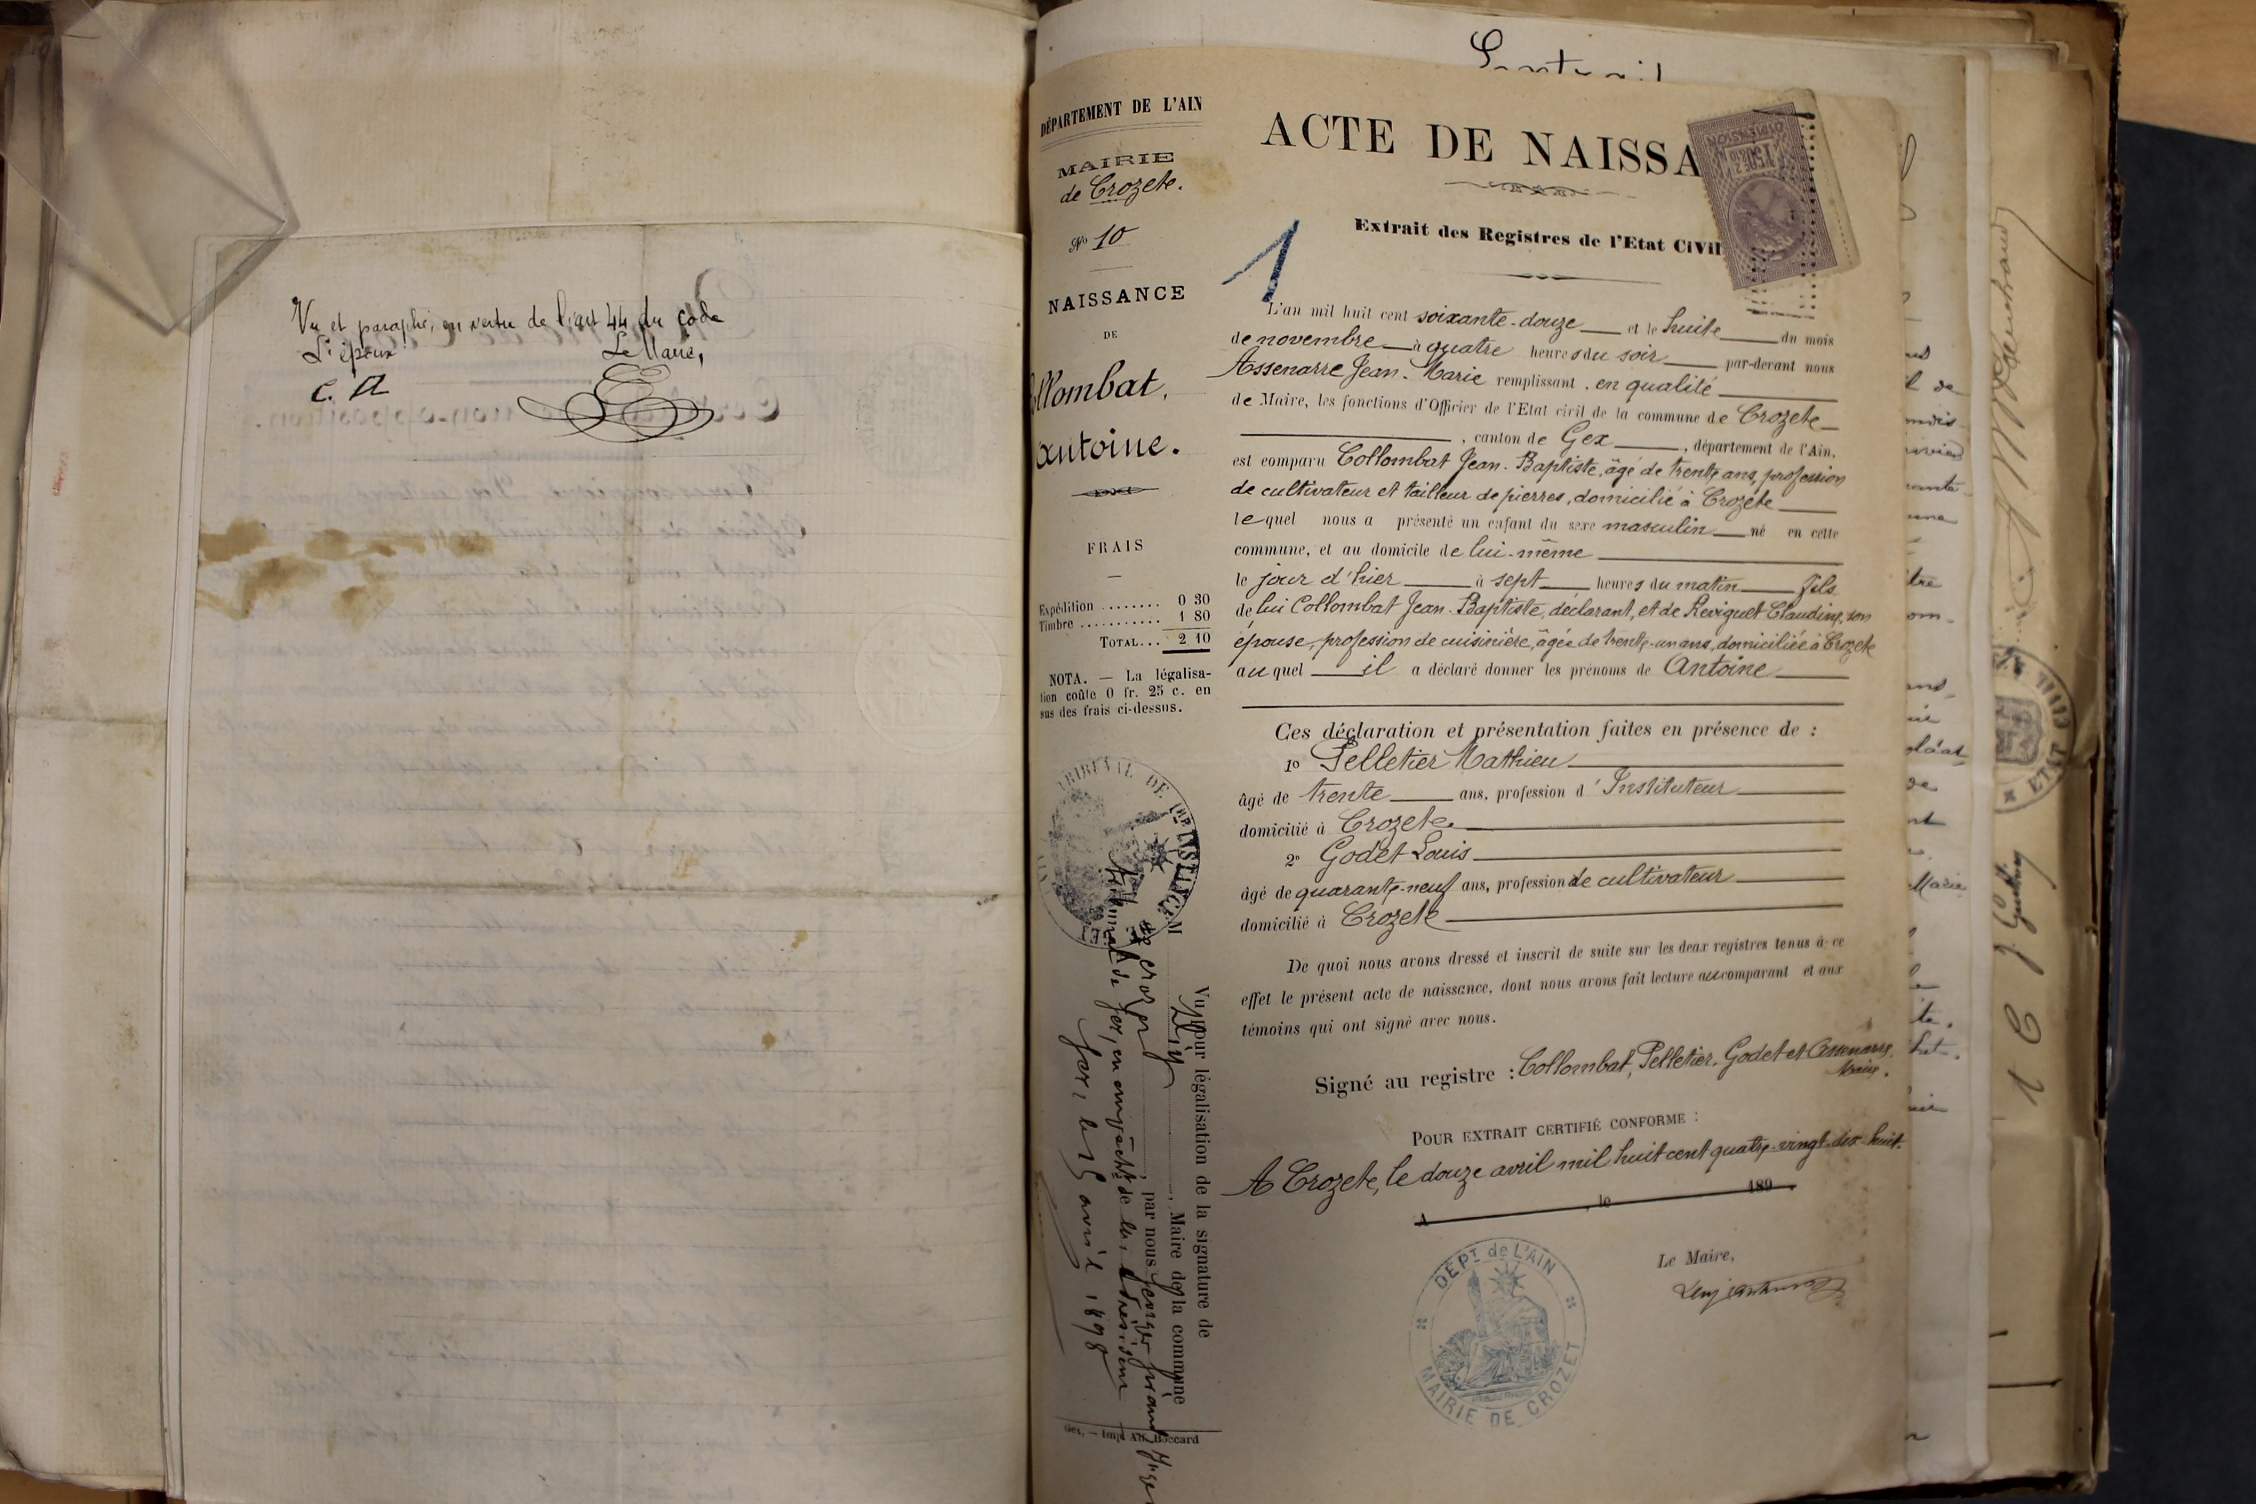 Vu et paraphé, en vertu de l'art 44 du code
L'époux Le Maire,
C. A
DÉPARTEMENT DE L'AIN
MAIRIE
de Crozete.
No 10
NAISSANCE
DE
ollombat,
antoine.
FRAIS
Expédition ........ 0 30
Timbre ........... 1 80
TOTAL... 2 10
NOTA. — La légalisa-
tion coûte 0 fr. 25 c. en
sus des frais ci-dessus.
TRIBUNAL DE 1re INSTANCE
Vu pour légalisation de la signature de
, Maire de la commune
de Crozet, par nous
Tribunal de Gex, en empêcht de
Gex, le 15 avril 1898
Gex, — Imp. Ad. Boccard
ACTE DE NAISSA
Extrait des Registres de l'Etat Civil
1
L'an mil huit cent soixante-douze et le huite du mois
de novembre à quatre heures du soir par-devant nous
Assenarre Jean-Marie remplissant, en qualité
de Maire, les fonctions d'Officier de l'Etat civil de la commune de Crozete
, canton de Gex, département de l'Ain,
est comparu Collombat Jean-Baptiste, âgé de trente ans, profession
de cultivateur et tailleur de pierres, domicilié à Crozete
lequel nous a présenté un enfant du sexe masculin né en cette
commune, et au domicile de lui-même
le jour d'hier à sept heures du matin fils
de lui Collombat Jean-Baptiste, déclarant, et de Reviguet Claudine, son
épouse, profession de cuisinière, âgée de trente-un ans, domiciliée à Crozete
auquel il a déclaré donner les prénoms de Antoine
Ces déclaration et présentation faites en présence de :
1o Pelletier Mathieu
âgé de trente ans, profession d'Instituteur
domicilié à Crozete
2o Godet Louis
âgé de quarante-neuf ans, profession de cultivateur
domicilié à Crozete
De quoi nous avons dressé et inscrit de suite sur les deux registres tenus à ce
effet le présent acte de naissance, dont nous avons fait lecture au comparant et aux
témoins qui ont signé avec nous.
Signé au registre : Collombat, Pelletier, Godet et Assenarre,
Maire.
POUR EXTRAIT CERTIFIÉ CONFORME :
A Crozete, le douze avril mil huit cent quatre-vingt-dix-huit.
A , le 189
Le Maire,
DÉPT de L'AIN
MAIRIE DE CROZET
ETAT CIVIL